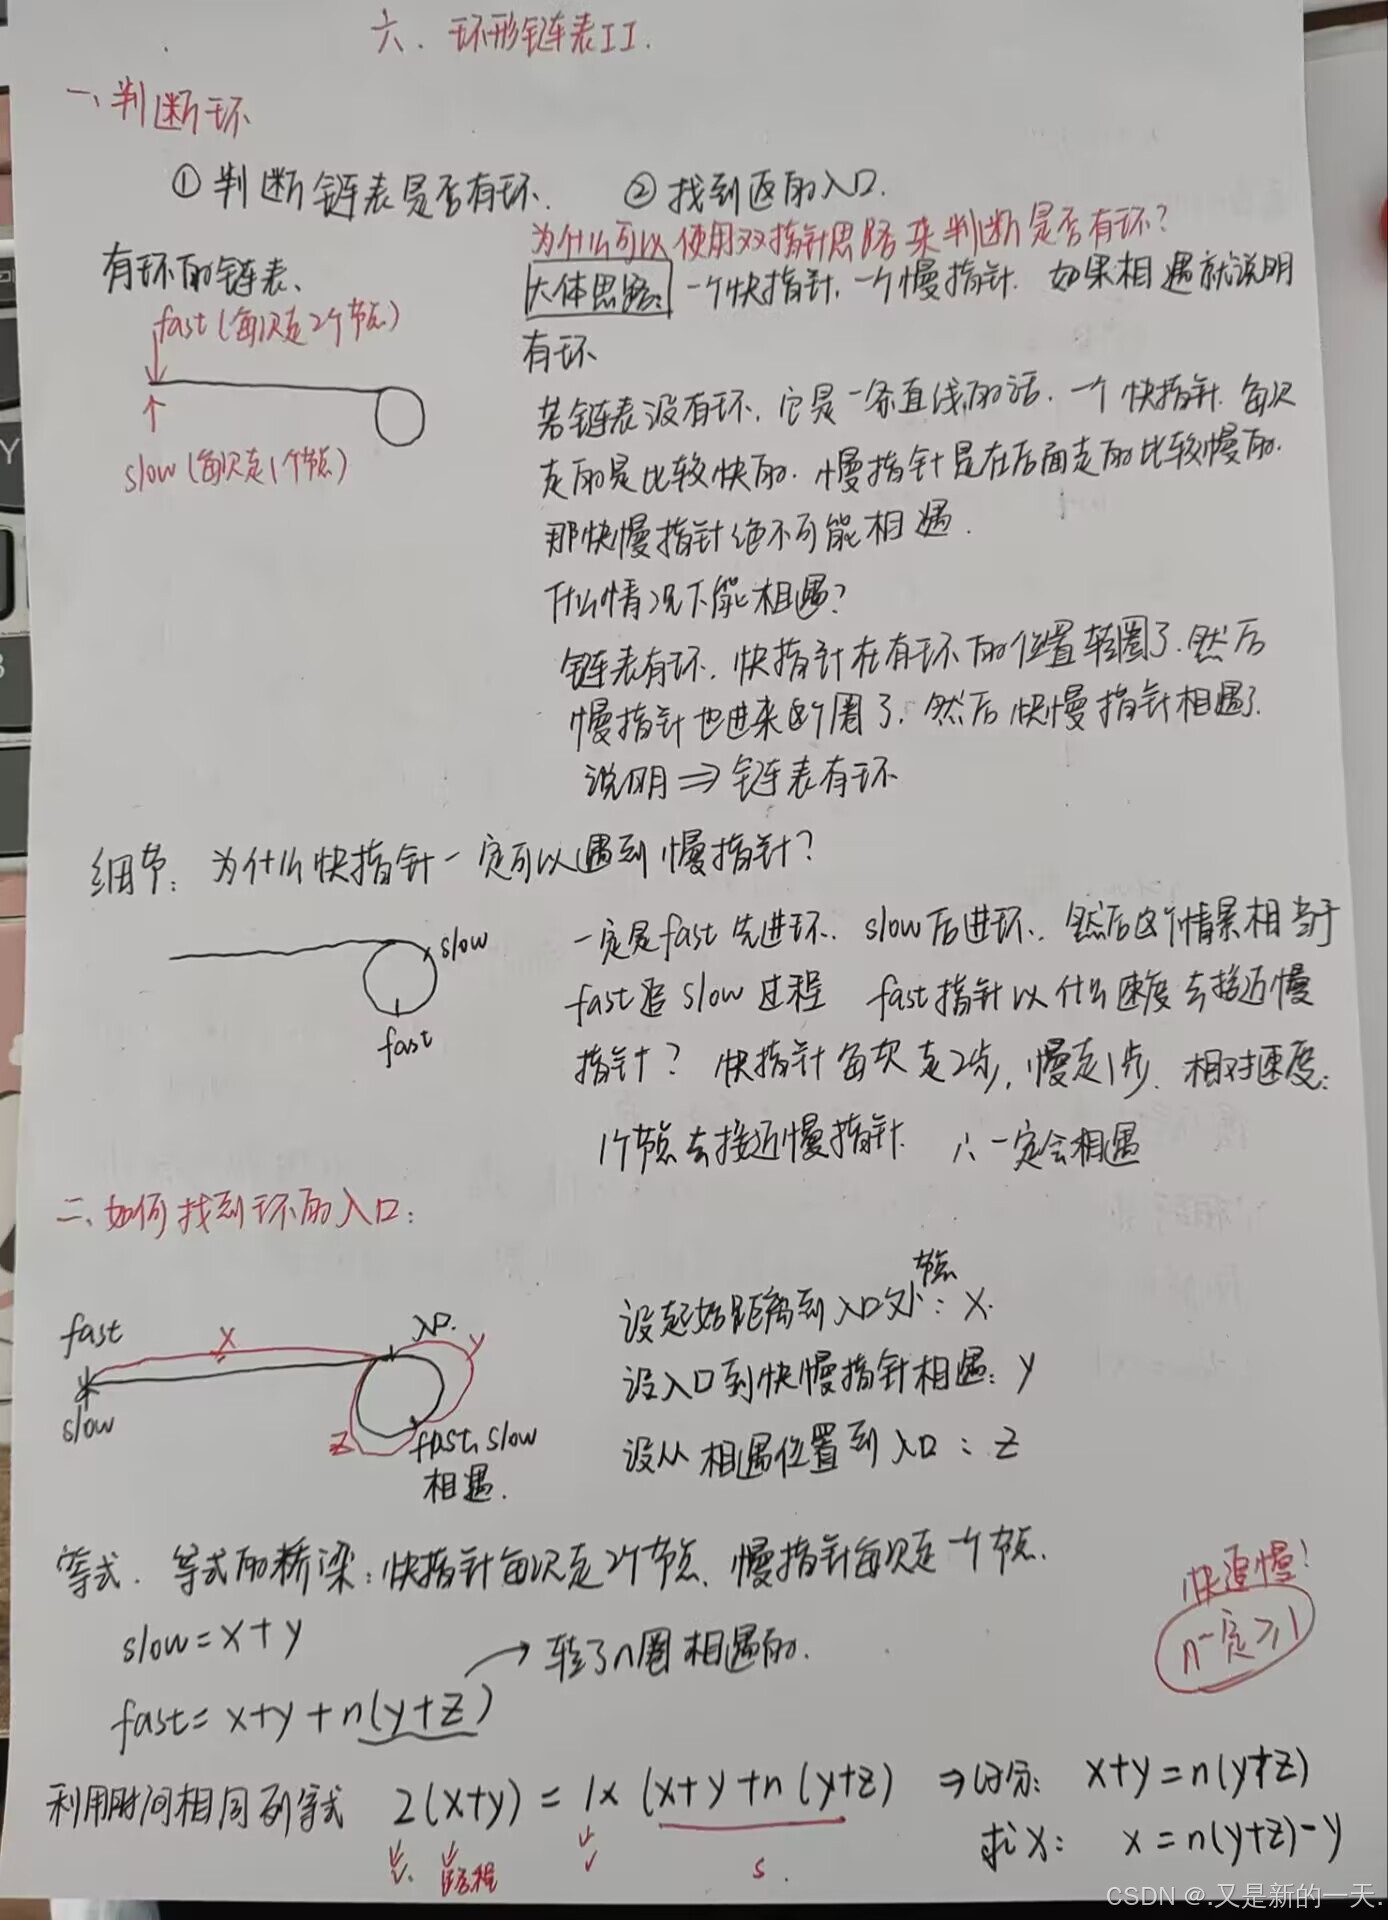 六、环形链表II.
一、判断环
①判断链表是否有环. ②找到返的入口.
为什么可以使用双指针思路来判断是否有环?
有环的链表、
大体思路: 一个快指针,一个慢指针. 如果相遇就说明
有环
fast(每次走2个节点)
slow(每次走1个节点)
若链表没有环,它是一条直线的话,一个快指针每次
走的是比较快的,慢指针是在后面走的比较慢的.
那快慢指针绝不可能相遇.
什么情况下能相遇?
链表有环,快指针在有环的位置转圈了.然后
慢指针也进来这个圈了,然后快慢指针相遇了.
说明⇒链表有环
细节:为什么快指针一定可以遇到慢指针?
slow
fast
一定是fast先进环,slow后进环,然后这个情景相当于
fast追slow过程 fast指针以什么速度去接近慢
指针? 快指针每次走2步,慢走1步,相对速度:
1个节点去接近慢指针. ∴一定会相遇
二、如何找到环的入口:
fast
slow
x
入口.
y
z
fast、slow
相遇.
设起始距离到入口处节点: x.
设入口到快慢指针相遇: y
设从相遇位置到入口: z
等式. 等式的桥梁:快指针每次走2个节点,慢指针每次走一个节点.
slow=x+y
→转了n圈相遇的.
fast=x+y+n(y+z)
快追慢!
n一定≥1
利用时间相同列等式 2(x+y)=1x(x+y+n(y+z) ⇒化后: x+y=n(y+z)
求x: x=n(y+z)-y
v. 路程 v s.
CSDN @.又是新的一天.